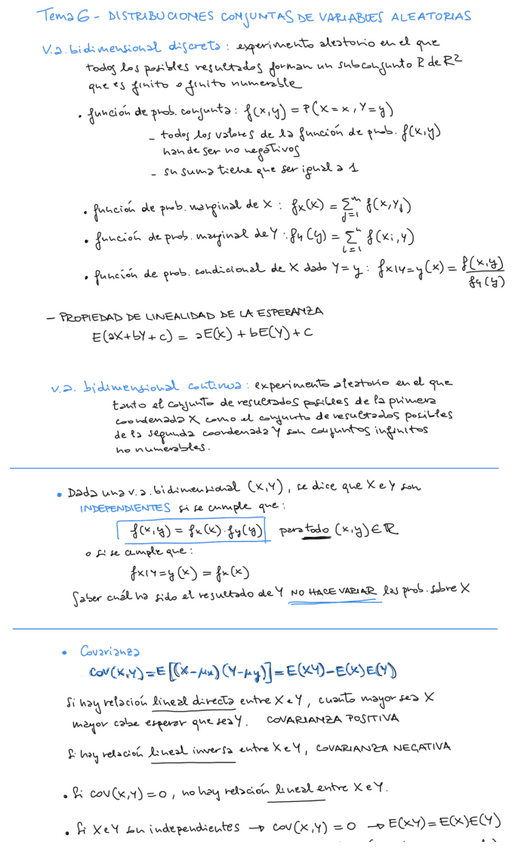 Tema 6 - DISTRIBUCIONES CONJUNTAS DE VARIABLES ALEATORIAS
v.a. bidimensional discreta: experimento aleatorio en el que
todos los posibles resultados forman un subconjunto R de R²
que es finito o finito numerable
• función de prob. conjunta: f(x,y) = P(X=x, Y=y)
- todos los valores de la función de prob. f(x,y)
han de ser no negativos
- su suma tiene que ser igual a 1
• función de prob. marginal de X: fx(x) = Σ_{j=1}^{m} f(x,yj)
• función de prob. marginal de Y: fy(y) = Σ_{i=1}^{n} f(xi,y)
• función de prob. condicional de X dado Y=y: fx|Y=y(x) = f(x,y)/fy(y)
- PROPIEDAD DE LINEALIDAD DE LA ESPERANZA
E(aX+bY+c) = aE(X)+bE(Y)+c
v.a. bidimensional continua: experimento aleatorio en el que
tanto el conjunto de resultados posibles de la primera
coordenada X como el conjunto de resultados posibles
de la segunda coordenada Y son conjuntos infinitos
no numerables.
• Dada una v.a. bidimensional (X,Y), se dice que X e Y son
INDEPENDIENTES si se cumple que:
f(x,y) = fx(x)·fy(y) para todo (x,y) ∈ R
o si se cumple que:
fx|Y=y(x) = fx(x)
Saber cuál ha sido el resultado de Y NO HACE VARIAR las prob. sobre X
• Covarianza
COV(X,Y) = E[(X-μx)(Y-μy)] = E(XY)-E(X)E(Y)
Si hay relación lineal directa entre X e Y, cuanto mayor sea X
mayor cabe esperar que sea Y. COVARIANZA POSITIVA
Si hay relación lineal inversa entre X e Y, COVARIANZA NEGATIVA
• Si COV(X,Y)=0, no hay relación lineal entre X e Y.
• Si X e Y son independientes → COV(X,Y)=0 → E(XY)=E(X)E(Y)